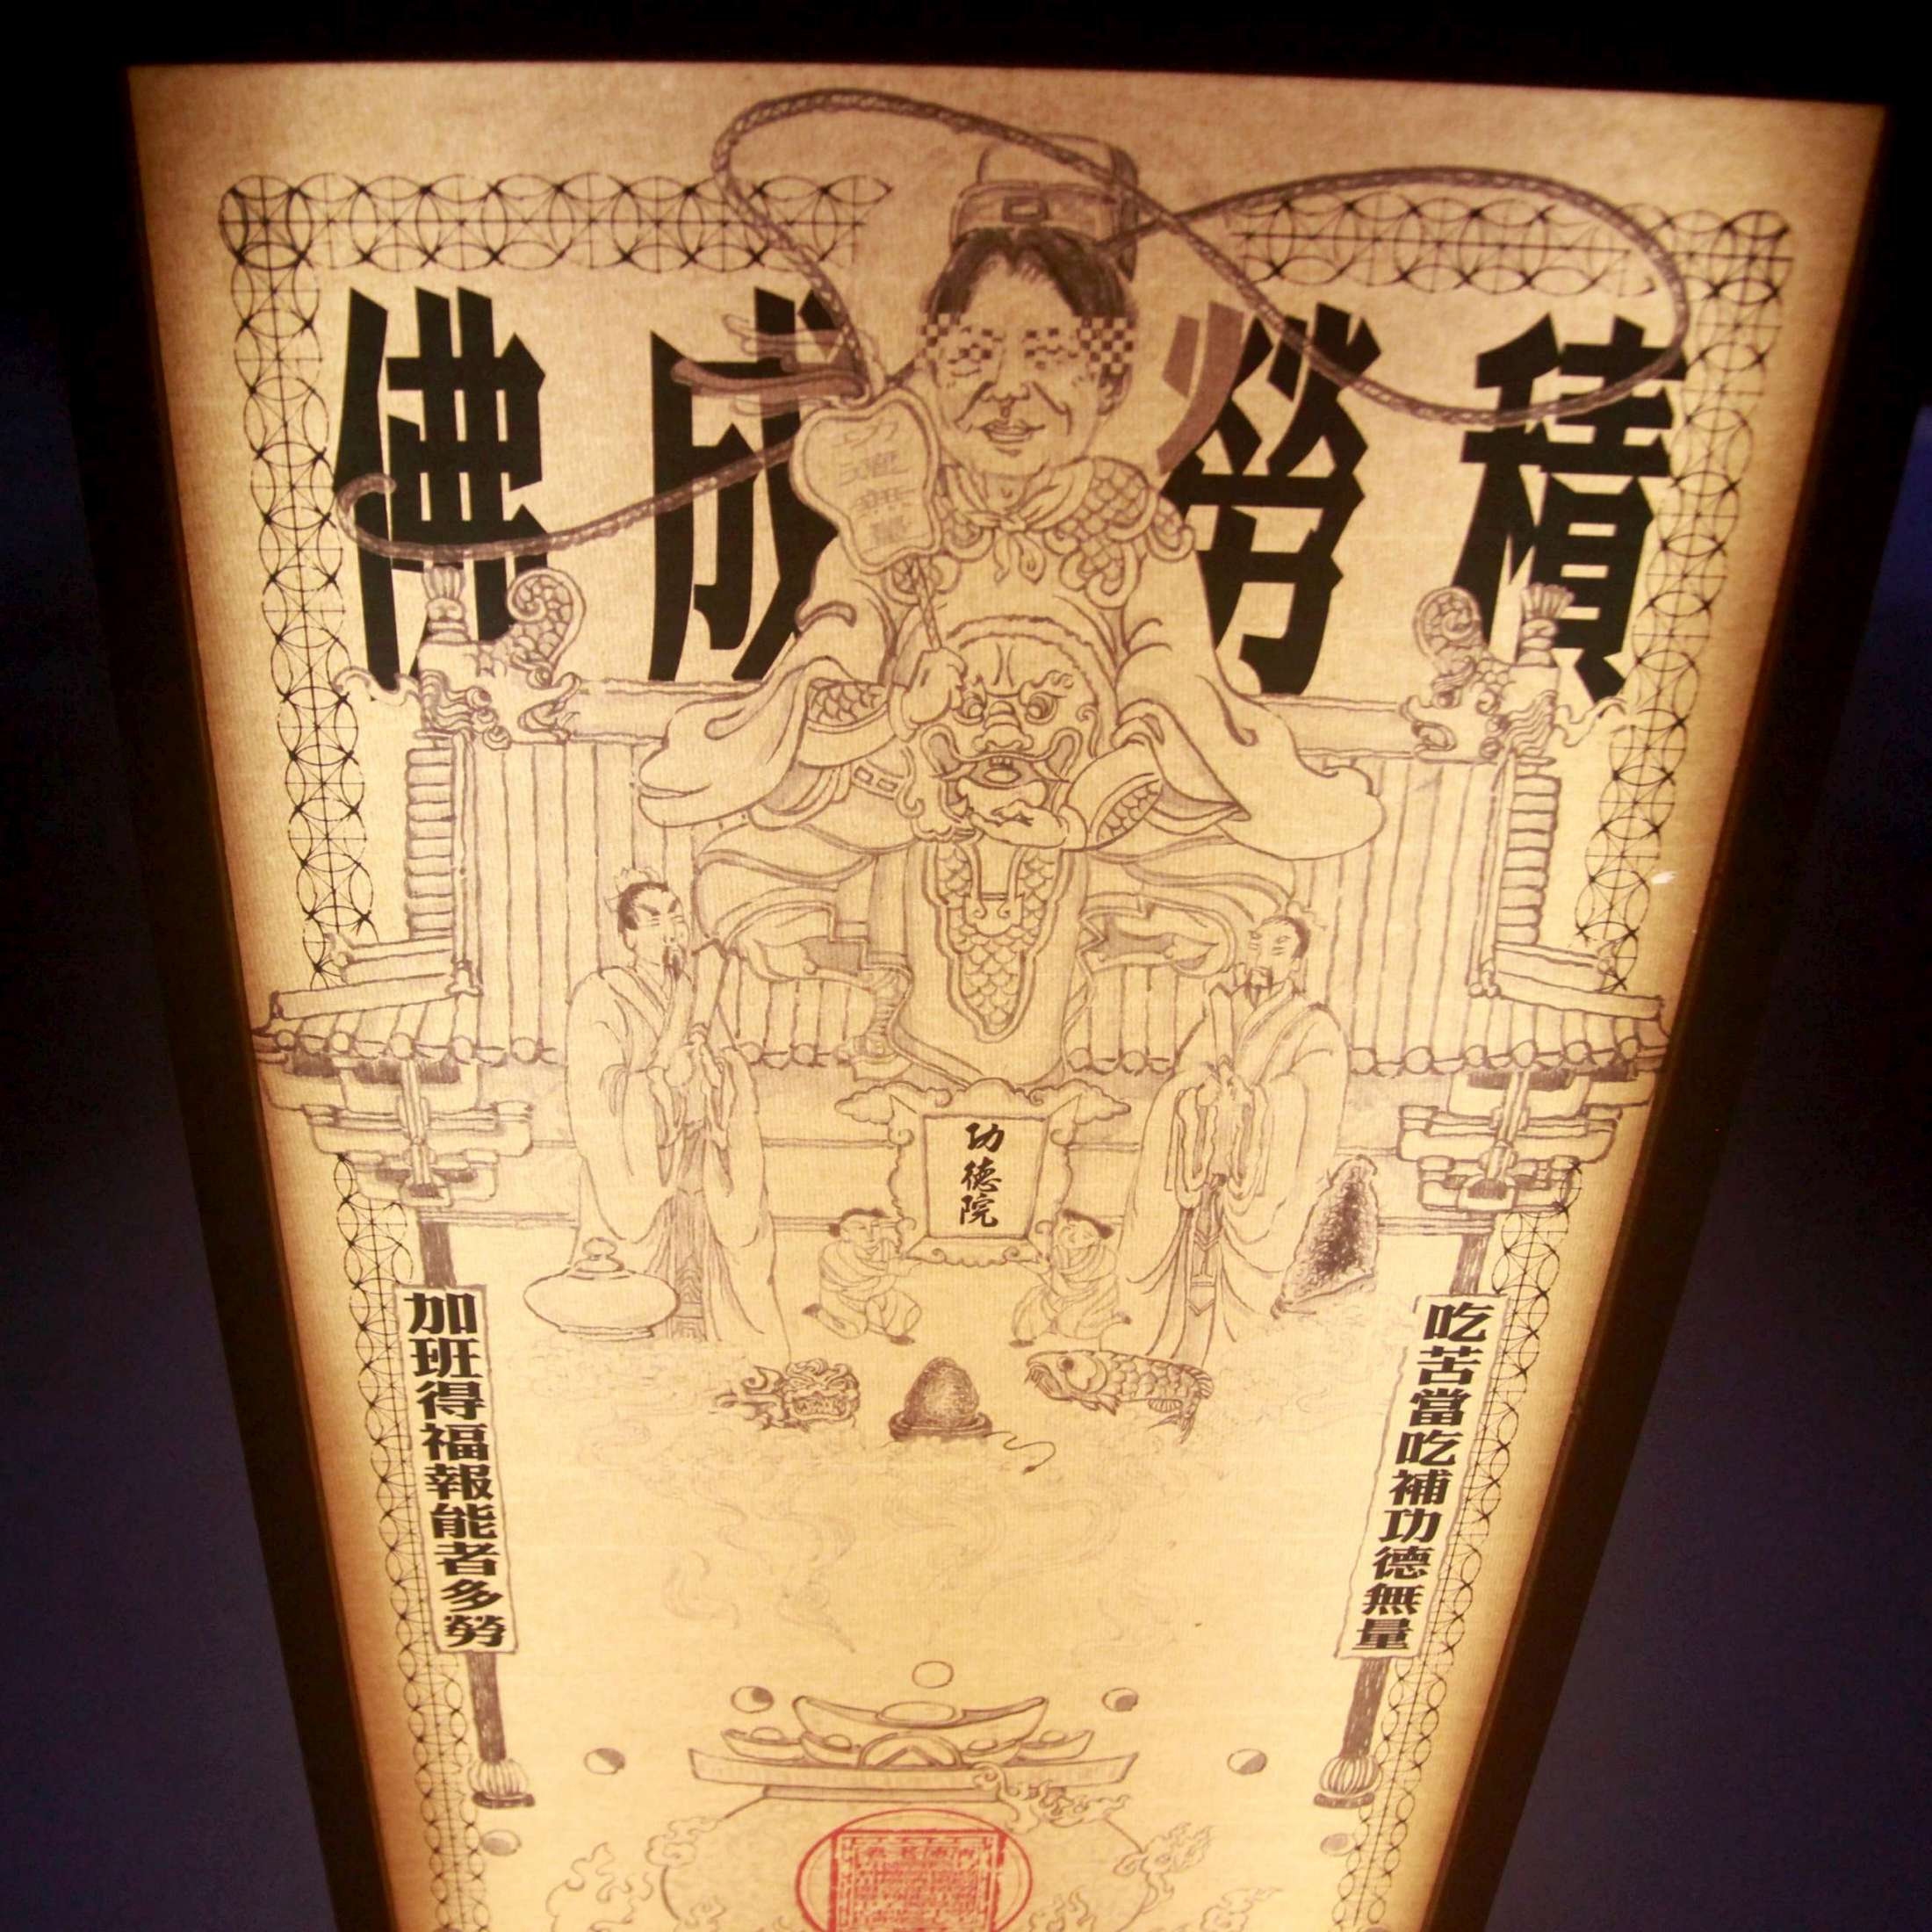 積勞成佛
功德無量
功德院
吃苦當吃補功德無量
加班得福報能者多勞